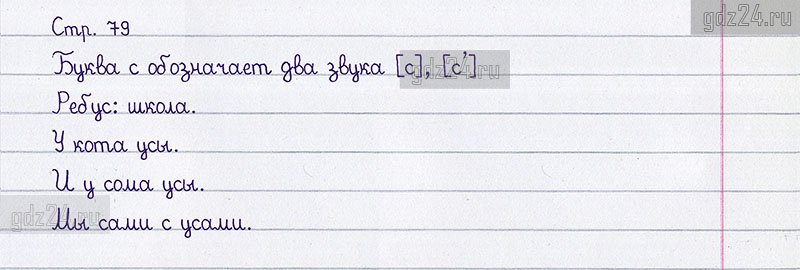 gdz24.ru
Стр. 79
Буква с обозначает два звука [с], [с']
gdz24.ru
Ребус: школа.
У кота усы.
И у сома усы.
gdz24.ru
Мы сами с усами.